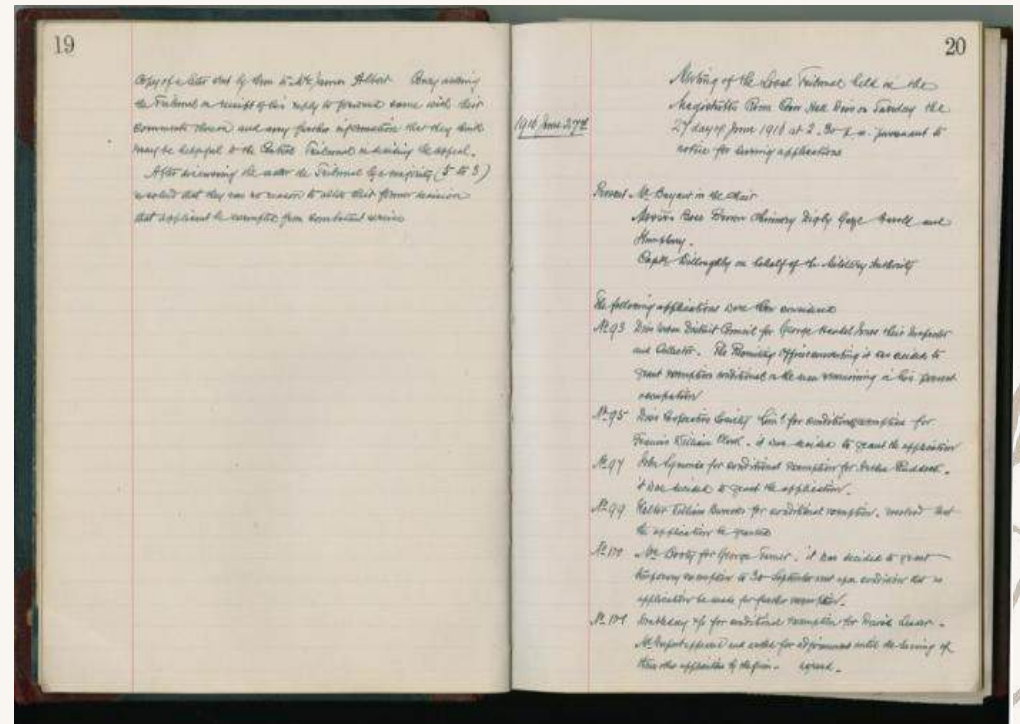 19
Copy of a letter sent by them to Mr James Albert asking
the Tribunal on receipt of his reply to forward same with their
comments thereon and any further information that they think
may be helpful to the Central Tribunal in deciding the appeal.
After discussing the matter the Tribunal by a majority (5 to 3)
resolved that they saw no reason to alter their former decision
that applicant be exempted from combatant service
20
1916 June 27th
Meeting of the Local Tribunal held in the
Magistrates Room Corn Hall Diss on Tuesday the
27 day of June 1916 at 2.30 p.m. pursuant to
notice for hearing applications
Present Mr in the Chair
Messrs Brown Chinery Digby Gaze and
Humphrey.
Captn Willoughby on behalf of the Military Authority
The following applications were then considered
No 93 Diss Urban District Council for George their Inspector
and Collector. The Military Officer consenting it was decided to
grant exemption conditional on the man remaining in his present
occupation
No 95 Diss Co-operative Society Limd for conditional exemption for
Francis William . it was decided to grant the application
No 97 John for conditional exemption for .
it was decided to grant the application.
No 99 Walter William for conditional exemption. resolved that
the application be granted
No 100 Mr for George Turner. it was decided to grant
temporary exemption to 30 September next upon condition that no
application be made for further exemption.
for conditional exemption for David .
Mr appeared and asked for adjournment until the hearing of
other applications by the firm. agreed.